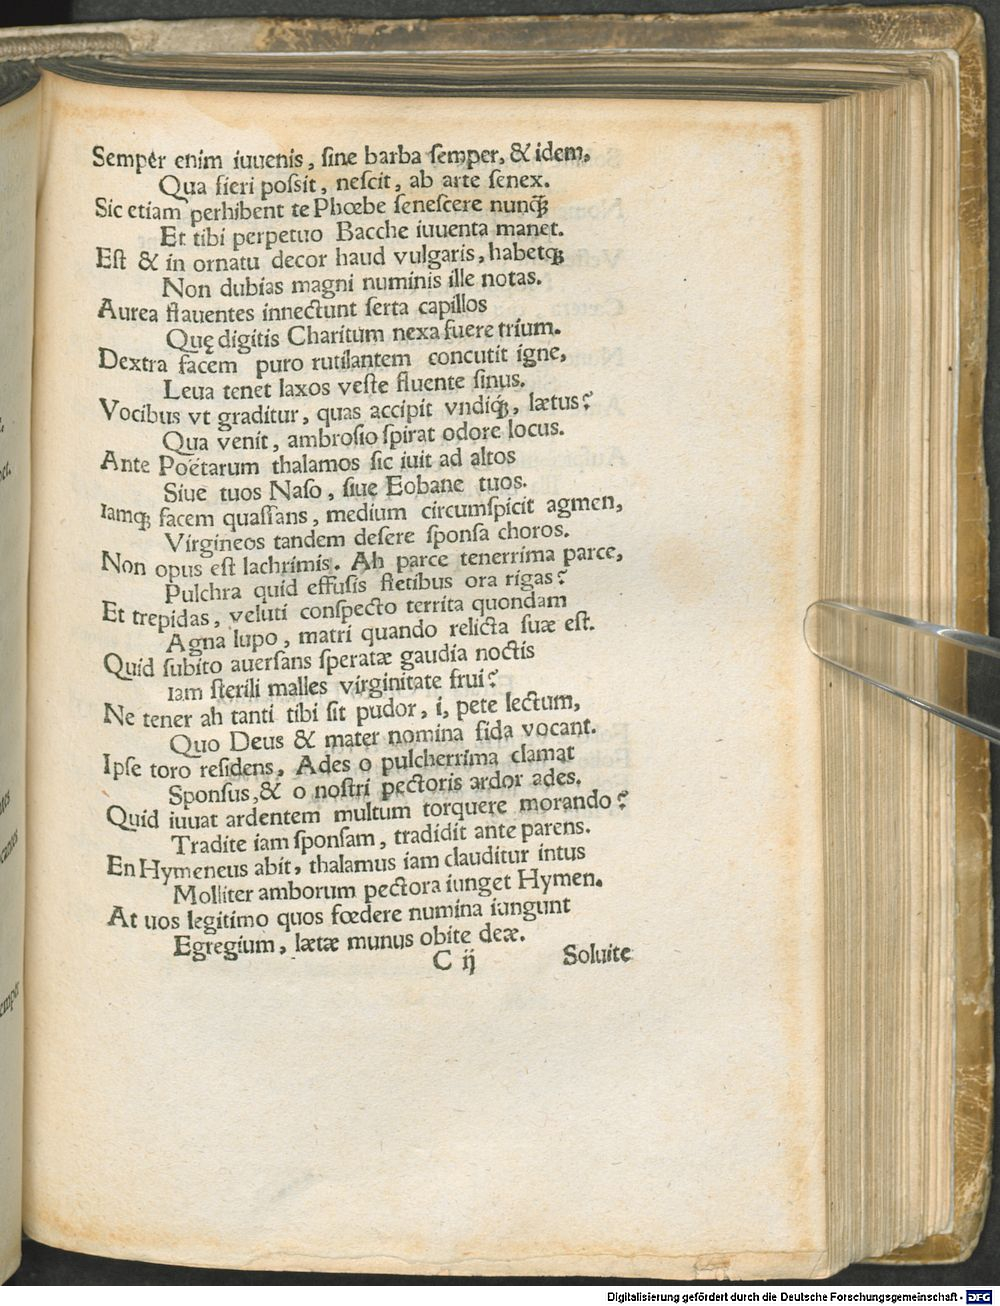 Sempėr enim iuuenis, ſine barba ſemper, & idem,
Qua fieri poſsit, neſcit, ab arte ſenex.
Sic etiam perhibent te Phœbe ſeneſcere nunꝗ̃
Et tibi perpetuo Bacche iuuenta manet.
Eſt & in ornatu decor haud vulgaris, habetꝗ;
Non dubias magni numinis ille notas.
Aurea flauentes innectunt ſerta capillos
Quę digitis Charitum nexa fuere trium.
Dextra facem puro rutilantem concutit igne,
Leua tenet laxos veſte fluente ſinus.
Vocibus vt graditur, quas accipit vndiꝗ;, lætus?
Qua venit, ambroſio ſpirat odore locus.
Ante Poëtarum thalamos ſic iuit ad altos
Siue tuos Naſo, ſiue Eobane tuos.
Iamꝗ; facem quaſſans, medium circumſpicit agmen,
Virgineos tandem deſere ſponſa choros.
Non opus eſt lachrimis. Ah parce tenerrima parce,
Pulchra quid effuſis fletibus ora rigas?
Et trepidas, veluti conſpecto territa quondam
Agna lupo, matri quando relicta ſuæ eſt.
Quid ſubito auerſans ſperatæ gaudia noctis
Iam ſterili malles virginitate frui?
Ne tener ah tanti tibi ſit pudor, i, pete lectum,
Quo Deus & mater nomina fida vocant.
Ipſe toro reſidens, Ades o pulcherrima clamat
Sponſus, & o noſtri pectoris ardor ades.
Quid iuuat ardentem multum torquere morando?
Tradite iam ſponſam, tradidit ante parens.
En Hymeneus abit, thalamus iam clauditur intus
Molliter amborum pectora iunget Hymen.
At uos legitimo quos fœdere numina iungunt
Egregium, lætæ munus obite deæ.
C ij Soluite
Digitalisierung gefördert durch die Deutsche Forschungsgemeinschaft - DFG